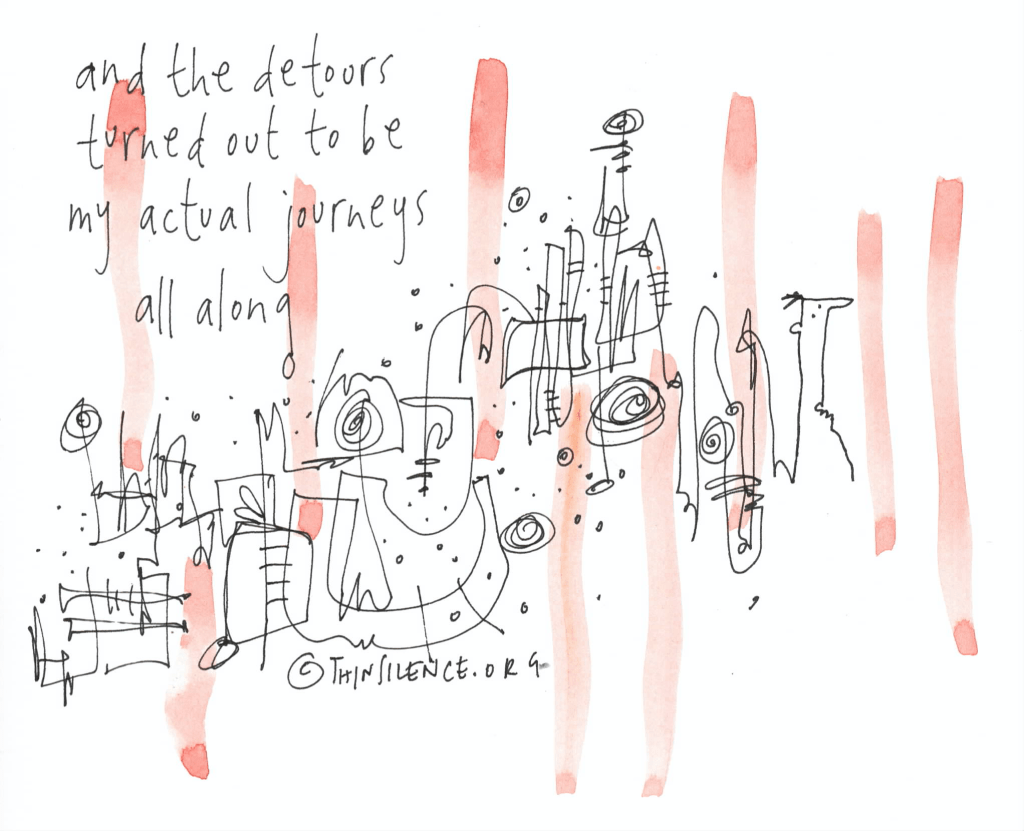 and the detours
turned out to be
my actual journeys
all along
© THINSILENCE.ORG